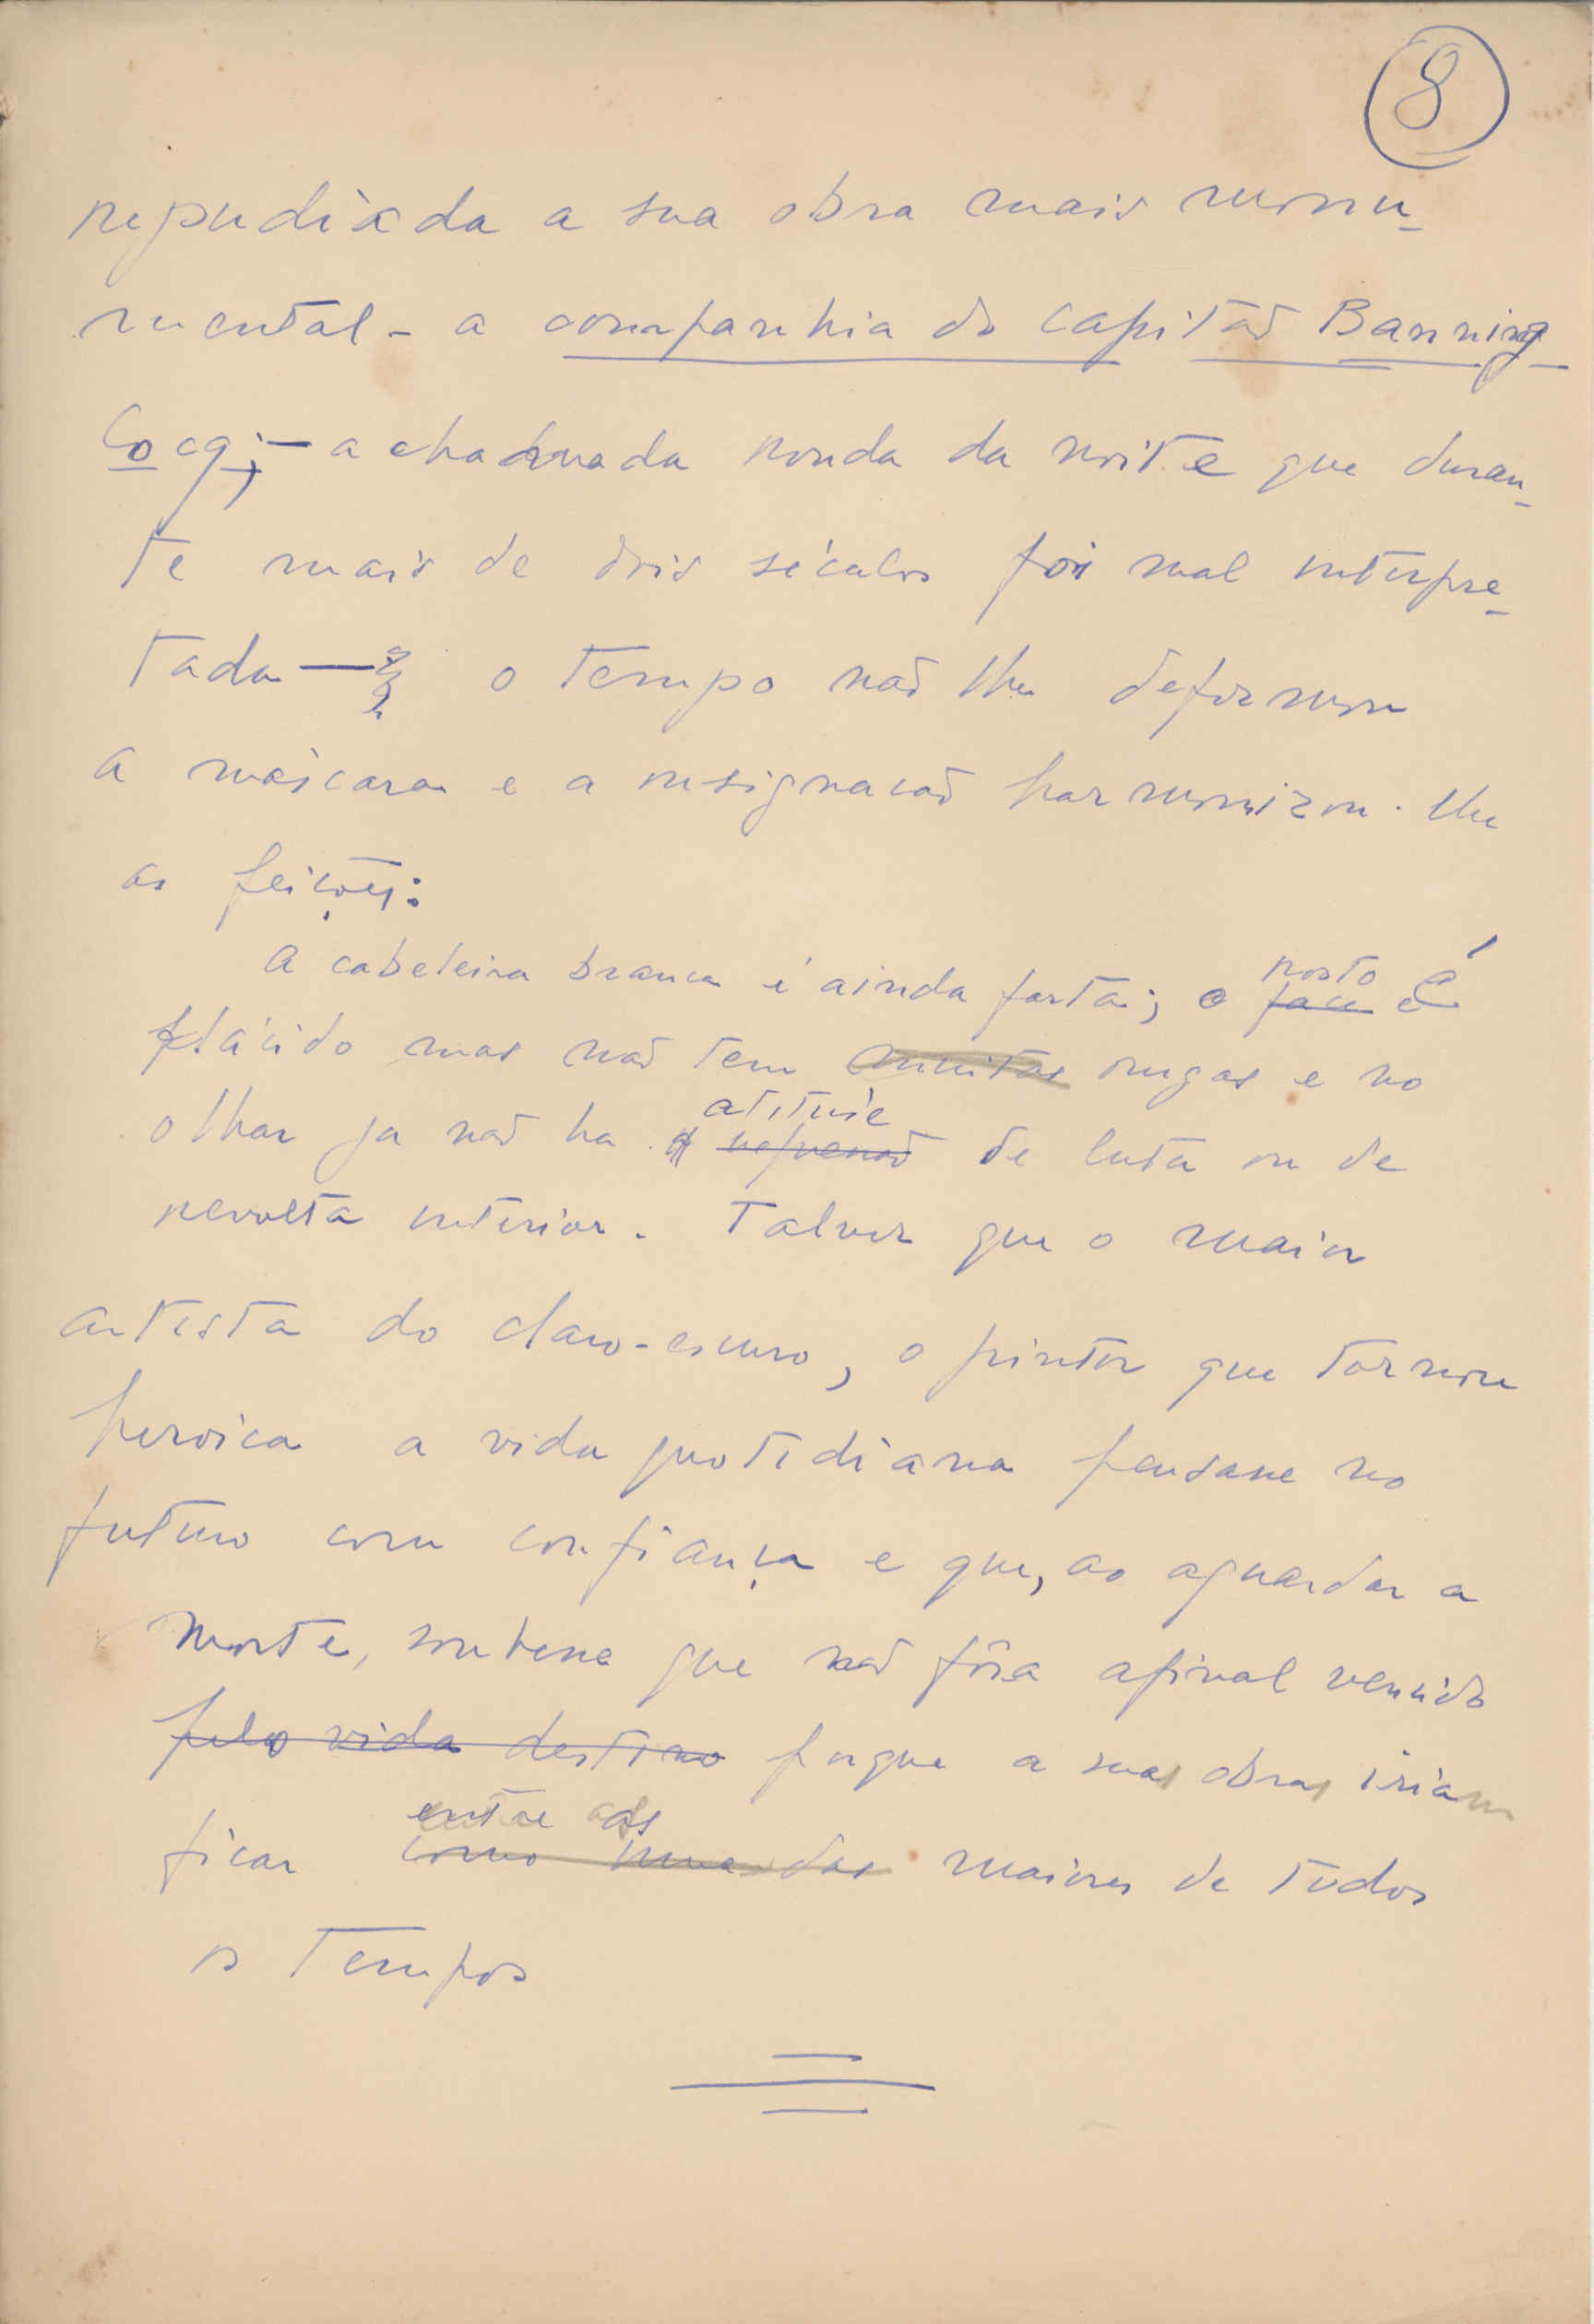 8
repudiada a sua obra mais monu-
mental - a companhia do capitão Banning
Cocq; - a chamada ronda da noite que duran-
te mais de dois séculos foi mal interpre-
tada — o tempo não lhe deformou
a máscara e a resignacão harmonizou-lhe
as feições:
A cabeleira branca é ainda farta; o rosto face é
plácido mas não tem muitas rugas e no
olhar ja não ha atitude de luta ou de
revolta interior. Talvez que o maior
artista do claro-escuro, o pintor que tornou
heroica a vida quotidiana pensasse no
futuro com confiança e que, ao aguardar a
morte, soubesse que não fôra afinal vencido
pelo vida destino porque a suas obras iriam
entre as
ficar como uma das maiores de todos
os tempos